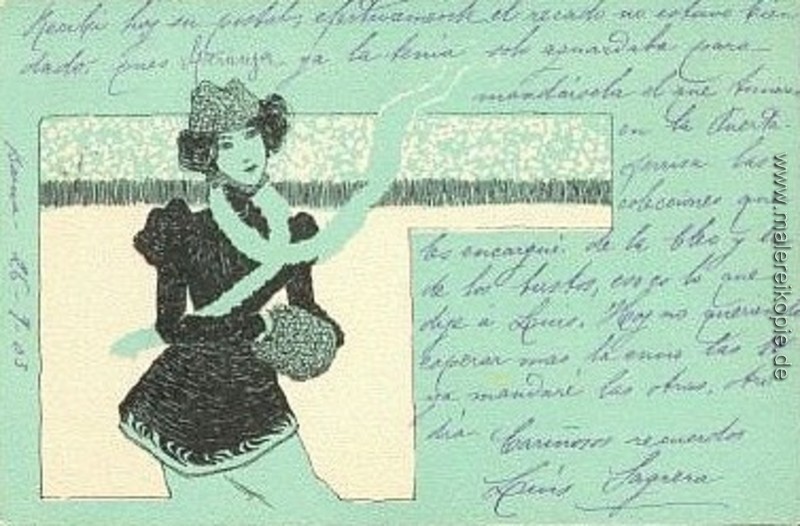 Recibí hoy su postal, efectivamente el recado no estava bien
dado, pues ya la tenia solo aguardaba para
mandársela el que
en la Puerta
las
colecciones que
les encargué. de la Cleo y
de los bustos, es lo que
dije á Luis. Hoy no queriendo
esperar mas le envio las
ya mandaré las otras, otro
dia. Cariñosos recuerdos
Luis Sagrera
www.malereikopie.de